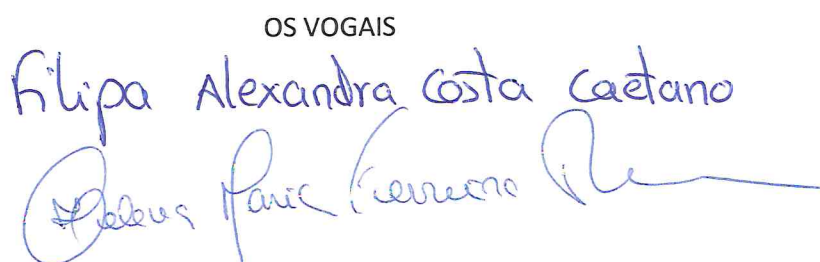 OS VOGAIS
Filipa Alexandra Costa Caetano
Helena Maria Ferreira